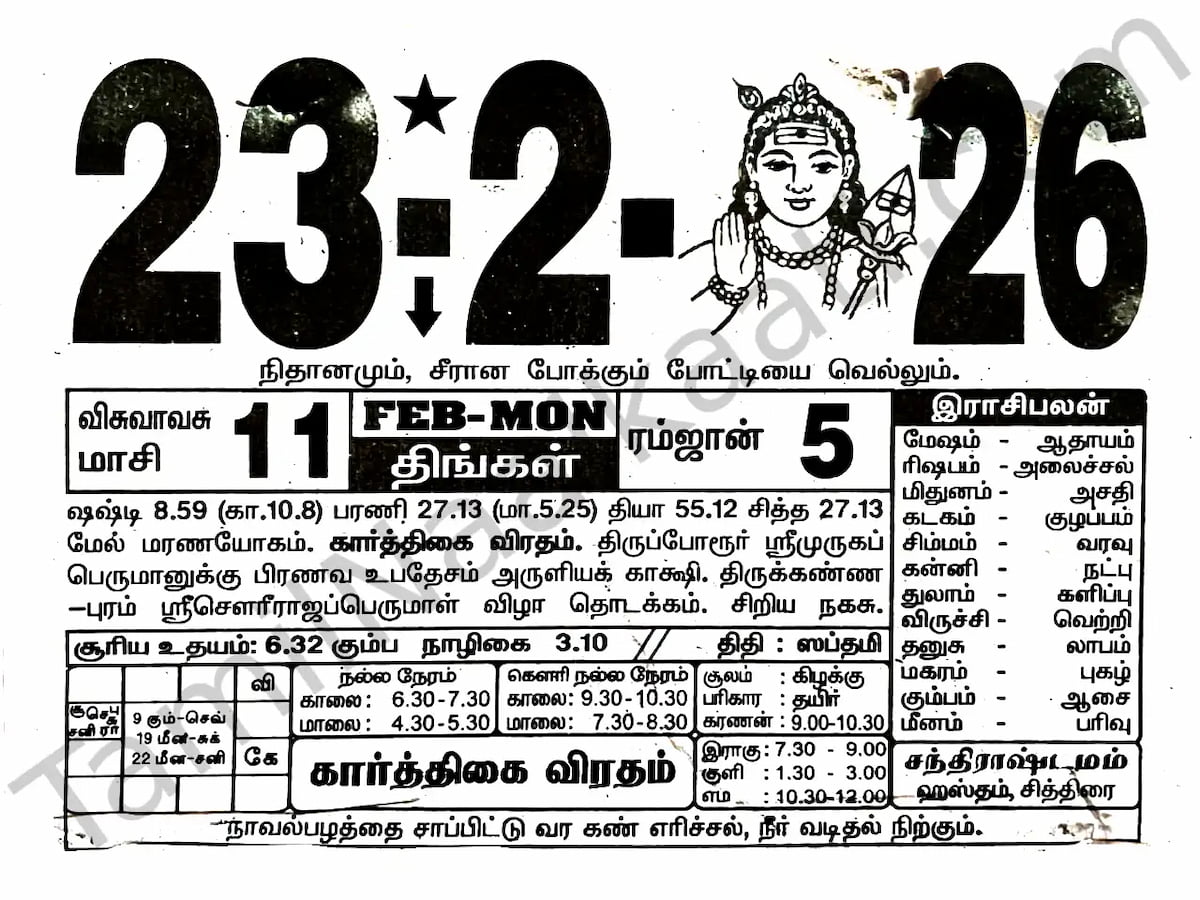 23-2-26
நிதானமும், சீரான போக்கும் போட்டியை வெல்லும்.
விசுவாவசு
மாசி 11
FEB-MON
திங்கள்
ரம்ஜான் 5
ஷஷ்டி 8.59 (கா.10.8) பரணி 27.13 (மா.5.25) தியா 55.12 சித்த 27.13
மேல் மரணயோகம். கார்த்திகை விரதம். திருப்போரூர் ஸ்ரீமுருகப்
பெருமானுக்கு பிரணவ உபதேசம் அருளியக் காக்ஷி. திருக்கண்ண
-புரம் ஸ்ரீசௌரீராஜப்பெருமாள் விழா தொடக்கம். சிறிய நகசு.
சூரிய உதயம்: 6.32 கும்ப நாழிகை 3.10 // திதி : ஸப்தமி
வி
கே
9 கும்-செவ்
19 மீன-சுக்
22 மீன-சனி
நல்ல நேரம்
காலை: 6.30-7.30
மாலை: 4.30-5.30
கௌரி நல்ல நேரம்
காலை: 9.30-10.30
மாலை: 7.30-8.30
சூலம் : கிழக்கு
பரிகார : தயிர்
கரணன் : 9.00-10.30
கார்த்திகை விரதம்
இராகு : 7.30 - 9.00
குளி : 1.30 - 3.00
எம : 10.30-12.00
இராசிபலன்
மேஷம் - ஆதாயம்
ரிஷபம் - அலைச்சல்
மிதுனம் - அசதி
கடகம் - குழப்பம்
சிம்மம் - வரவு
கன்னி - நட்பு
துலாம் - களிப்பு
விருச்சி - வெற்றி
தனுசு - லாபம்
மகரம் - புகழ்
கும்பம் - ஆசை
மீனம் - பரிவு
சந்திராஷ்டமம்
ஹஸ்தம், சித்திரை
நாவல்பழத்தை சாப்பிட்டு வர கண் எரிச்சல், நீர் வடிதல் நிற்கும்.
TamilNaalkaati.com